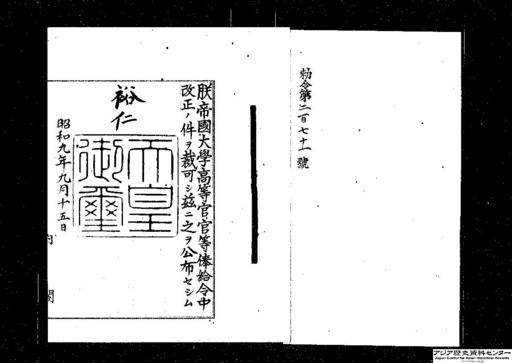 勅令第二百七十一號
朕帝國大學高等官官等俸給令中
改正ノ件ヲ裁可シ茲ニ之ヲ公布セシム
裕仁
天皇
御璽
昭和九年九月十五日
内閣
アジア歴史資料センター
Japan Center for Asian Historical Records